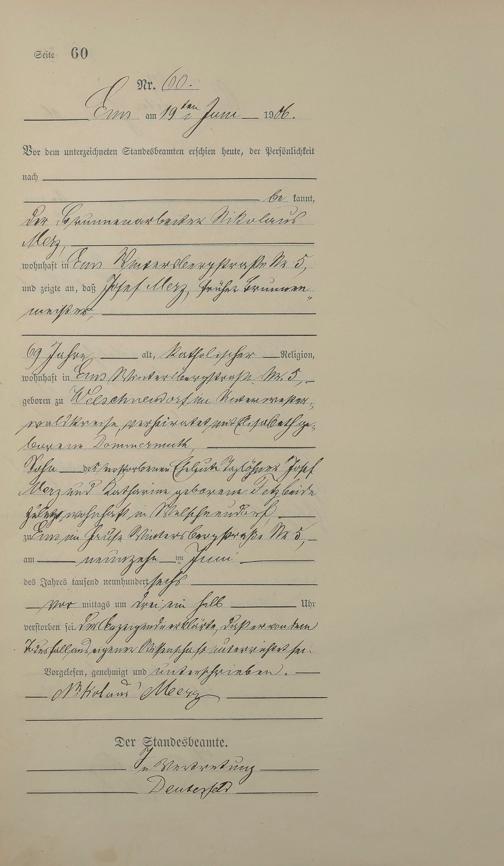 Seite 60
Nr. 60.
Ems am 19ten Juni 1906.
Vor dem unterzeichneten Standesbeamten erschien heute, der Persönlichkeit
nach
be kannt,
der Brunnenarbeiter Nikolaus
Merz
wohnhaft in Ems Wintersbergstraße Nr 5,
und zeigte an, daß Josef Merz, früher Brunnen-
meister,
69 Jahre, alt, katholischer Religion,
wohnhaft in Ems Wintersbergstraße Nr. 5,
geboren zu Welschneudorf im Unterwester-
waldkreise, verheiratet mit Elisabeth ge-
borene Dommermuth,
Sohn der verstorbenen Eheleute Taglöhner Josef
Merz und Katharina geborene beide
zuletzt wohnhaft in Welschneudorf
zu Ems im Hause Wintersbergstraße Nr 5,
am neunzehn ten Juni
des Jahres tausend neunhundert sechs
vor mittags um drei ein halb Uhr
verstorben sei. Der Anzeigende erklärte, daß er von dem
Todesfall aus eigener Wissenschaft unterrichtet sei.
Vorgelesen, genehmigt und unterschrieben.
Nikolaus Merz
Der Standesbeamte.
In Vertretung